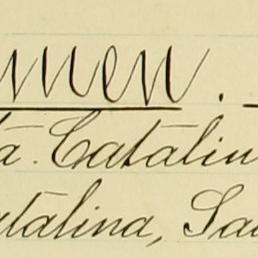 men.
ta. Catalin
atalina, Sa